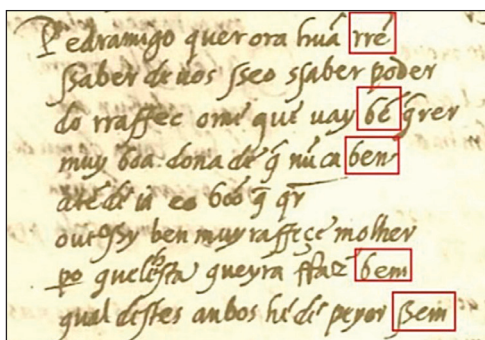 Pedramigo quer ora huã rrẽ
ssaber de uos sseo ssaber poder
do rraffec ome que uay bẽ q̃rer
muy boa dona de q̃ nũca ben
atẽde
outossy ben muy raffeçe molher
que lhesta queyra ffaz bem
qual destes anbos he de peyor ssem